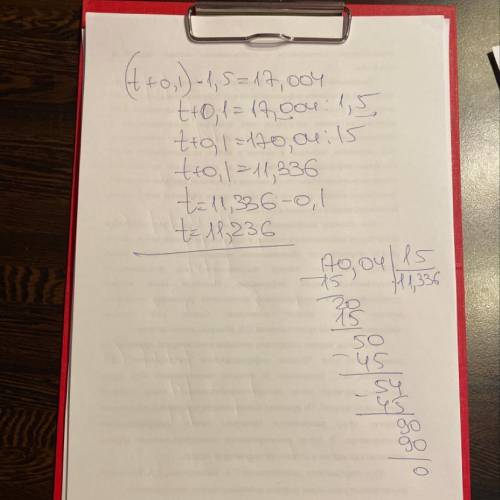 (t+0,1)·1,5=17,004
t+0,1=17,004:1,5
t+0,1=170,04:15
t+0,1=11,336
t=11,336-0,1
t=11,236
170,04|15
-15 11,336
20
15
50
-45
54
-45
90
90
0